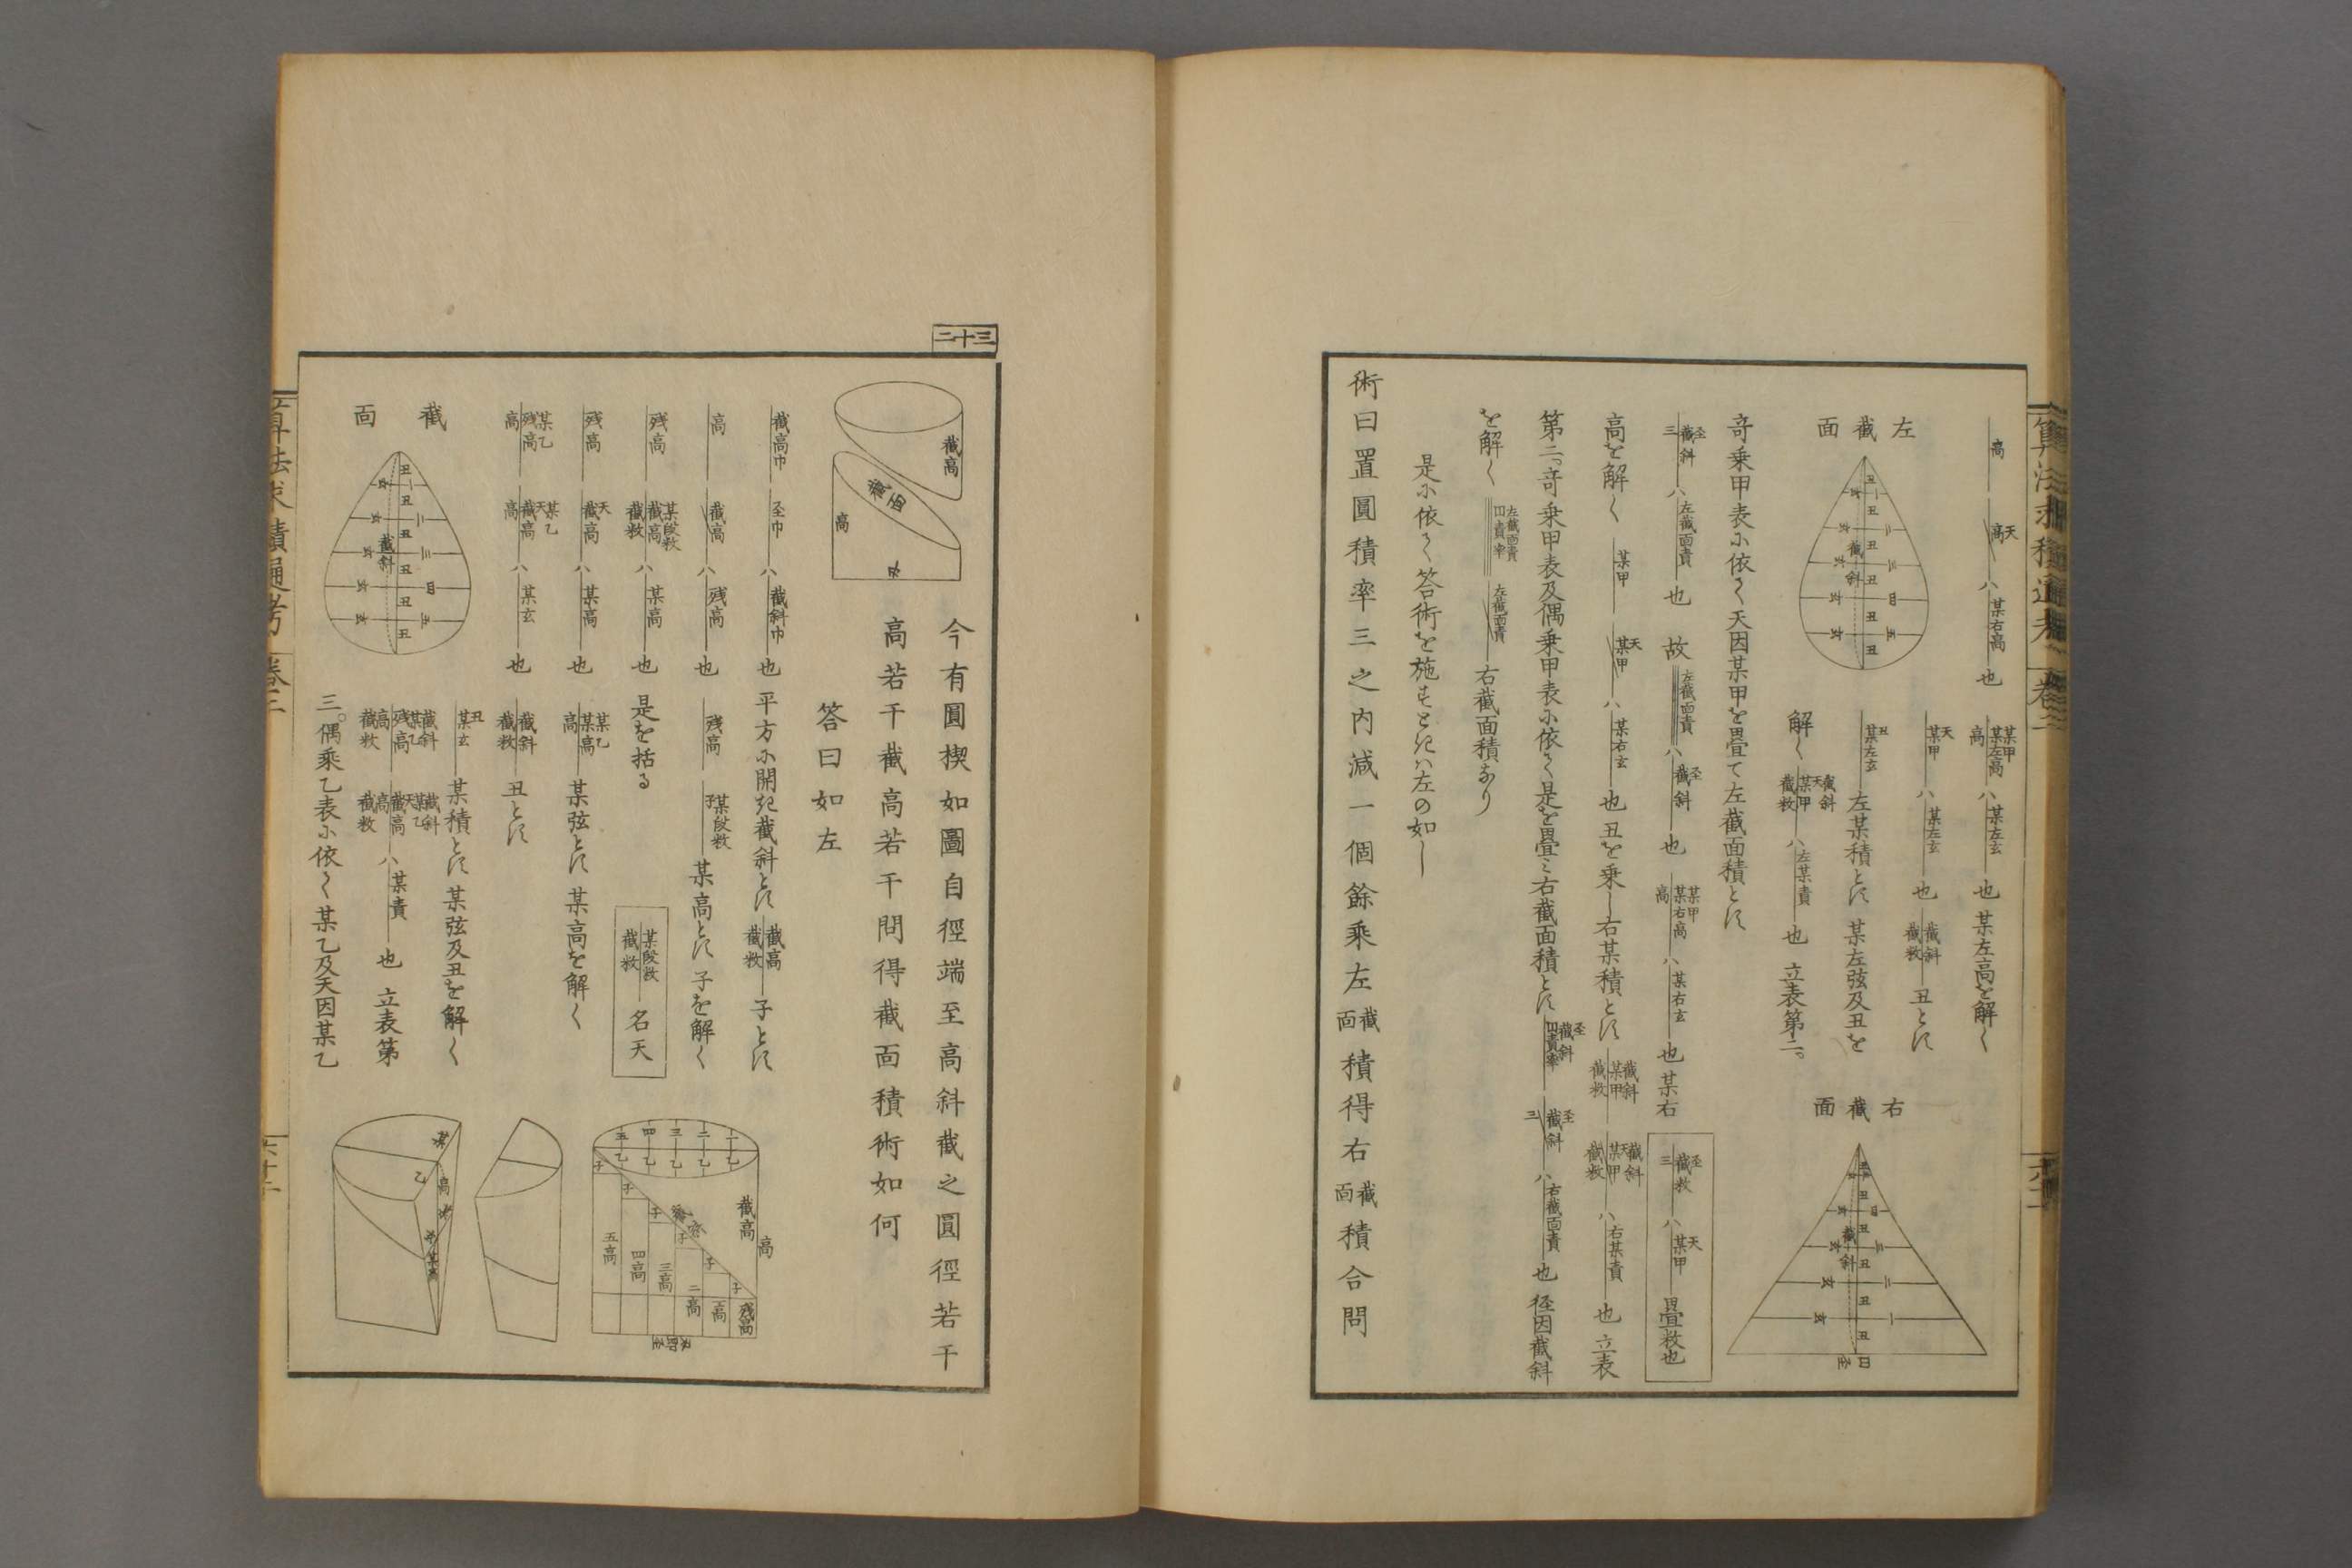 算法求積通考
卷三
左截面
右截面
高 高天 ハ 某右高 也
某甲 某左高 高 ハ 某左玄 也 某左高を解く
天 某甲 ハ 某左玄 也 截斜 截数 丑とす
丑 某左玄 左某積とす 某左弦及丑を
解く 截斜 天 某甲 截数 ハ 左某責 也 立表第二。
奇乗甲表に依て天因某甲を畳て左截面積とす
至 截斜 三 ハ 左截面責 也 故 左截面責 ハ 至 截斜 也 某甲 某右高 高 ハ 某右玄 也 某右
至 截数 三 ハ 天 某甲 畳数也
高を解く 某甲 天 某甲 ハ 某右玄 也 丑を乗し右某積とす 截斜 某甲 截数 截斜 天 某甲 截数 ハ 右某責 也 立表
第二。奇乗甲表及偶乗甲表に依て是を畳ミ右截面積とす 至 截斜 円責率 至 截斜 三 ハ 右截面責 也 径因截斜
を解く 左截面責 円責率 左截面責 右截面積なり
是に依て答術を施すときハ左の如し
術曰置圓積率三之内減一個餘乘左截面積得右截面積合問
三十二
截高 截面 高 至
今有圓楔如圖自徑端至高斜截之圓徑若干
高若干截高若干問得截面積術如何
答曰如左
截高巾 至巾 ハ 截斜巾 也 平方に開き截斜とす 截高 截数 子とす
高 截高 ハ 残高 也 残高 某段数 子 某高とす 子を解く
残高 某段数 截高 截数 ハ 某高 也 是を括る 某段数 截数 名天
残高 天 截高 ハ 某高 也 某乙 某高 高 某弦とす 某高を解く
某乙 残高 高 某乙 天 截高 高 ハ 某玄 也 截斜 截数 丑とす
丑 某玄 某積とす 某弦及丑を解く
截斜 某乙 残高 高 截数 截斜 某乙 天 截高 高 截数 ハ 某責 也 立表第
三。偶乘乙表に依て某乙及天因某乙
截面
截斜
一 二 三 四 五
截高 高 残高
一高 二高 三高 四高 五高
算法求積通考
卷三